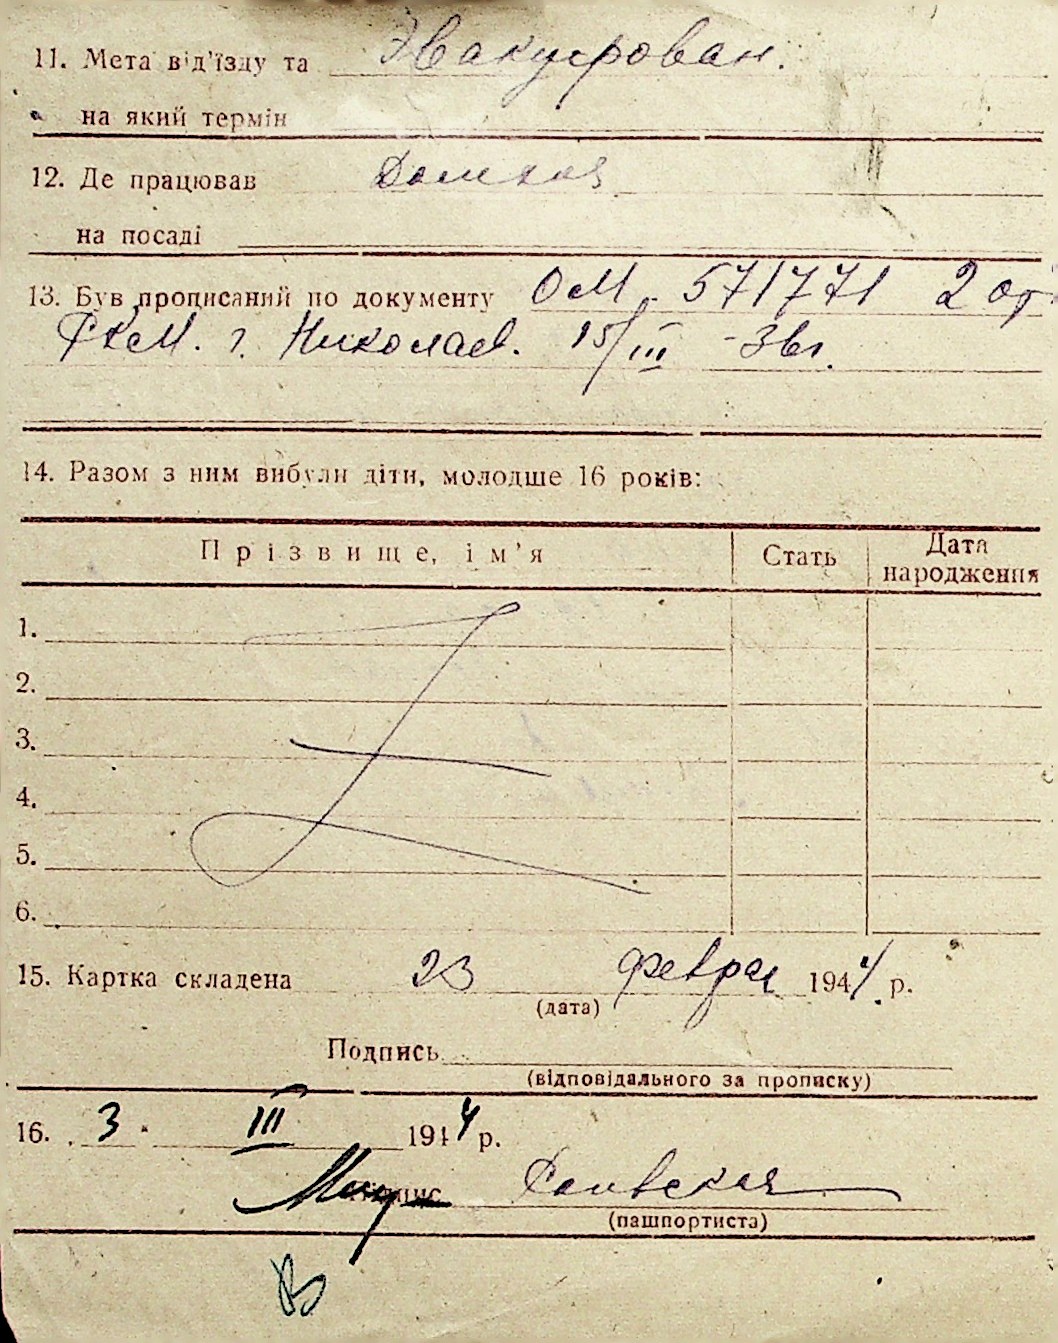 11. Мета від’їзду та Эвакуирован.
на який термін
12. Де працював
на посаді
13. Був прописаний по документу ОМ 571771 2 от
РКМ. г. Николаев. 15/III -
14. Разом з ним вибули діти, молодше 16 років:
Прізвище, ім’я Стать Дата народження
1.
2.
3.
4.
5.
6.
15. Картка складена 23 феврал 1944 р.
(дата)
Подпись
(відповідального за прописку)
16. 3. III 1944 р.
(пашпортиста)